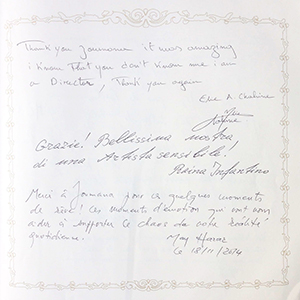 Thank you Joumana it was amazing
i know that you don't know me i am
a Director, Thank you again
Grazie! Bellissima mostra
di una Artista sensibile!
Reina Infantino
Merci à Joumana pour ces quelques moments
de rêve! Ces moments d'émotion qui vont nous
aider à supporter le chaos de notre réalité
quotidienne.
May
le 18/11/2014